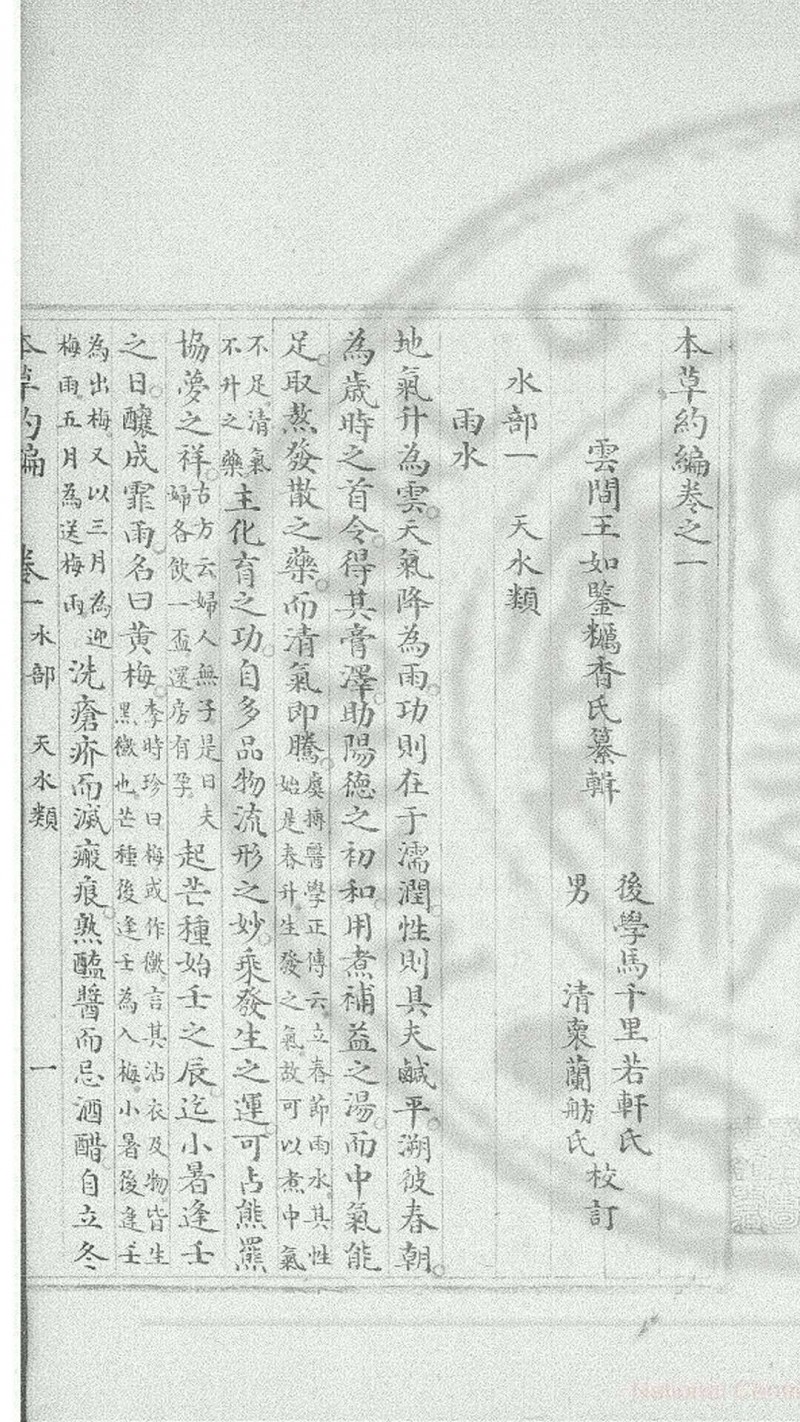 本草約編卷之一
後學馬千里若軒氏
雲間王如鑒糲香氏纂輯
校訂
男　清
蘭舫氏
水部一　天水類
雨水
地氣升為雲天氣降為雨功則在于濡潤性則具夫鹹平溯彼春朝
為歲時之首令得其膏澤助陽德之初和用煮補益之湯而中氣能
足取熬發散之藥而清氣即騰
虞摶醫學正傳云立春節雨水其性
始是春升生發之氣故可以煮中氣
不足清氣
不升之藥
主化育之功自多品物流形之妙乘發生之運可占熊羆
協夢之祥
古方云婦人無子是日夫
婦各飲一盃還房有孕
起芒種始壬之辰迄小暑逢壬
之日釀成霏雨名曰黃梅
李時珍曰梅或作黴言其沾衣及物皆生
黑黴也芒種後逢壬為入梅小暑後逢壬
為出梅又以三月為迎
梅雨五月為送梅雨
洗瘡疥而滅瘢痕熟醯醬而忌酒醋自立冬
本草約編　卷一水部　天水類　一